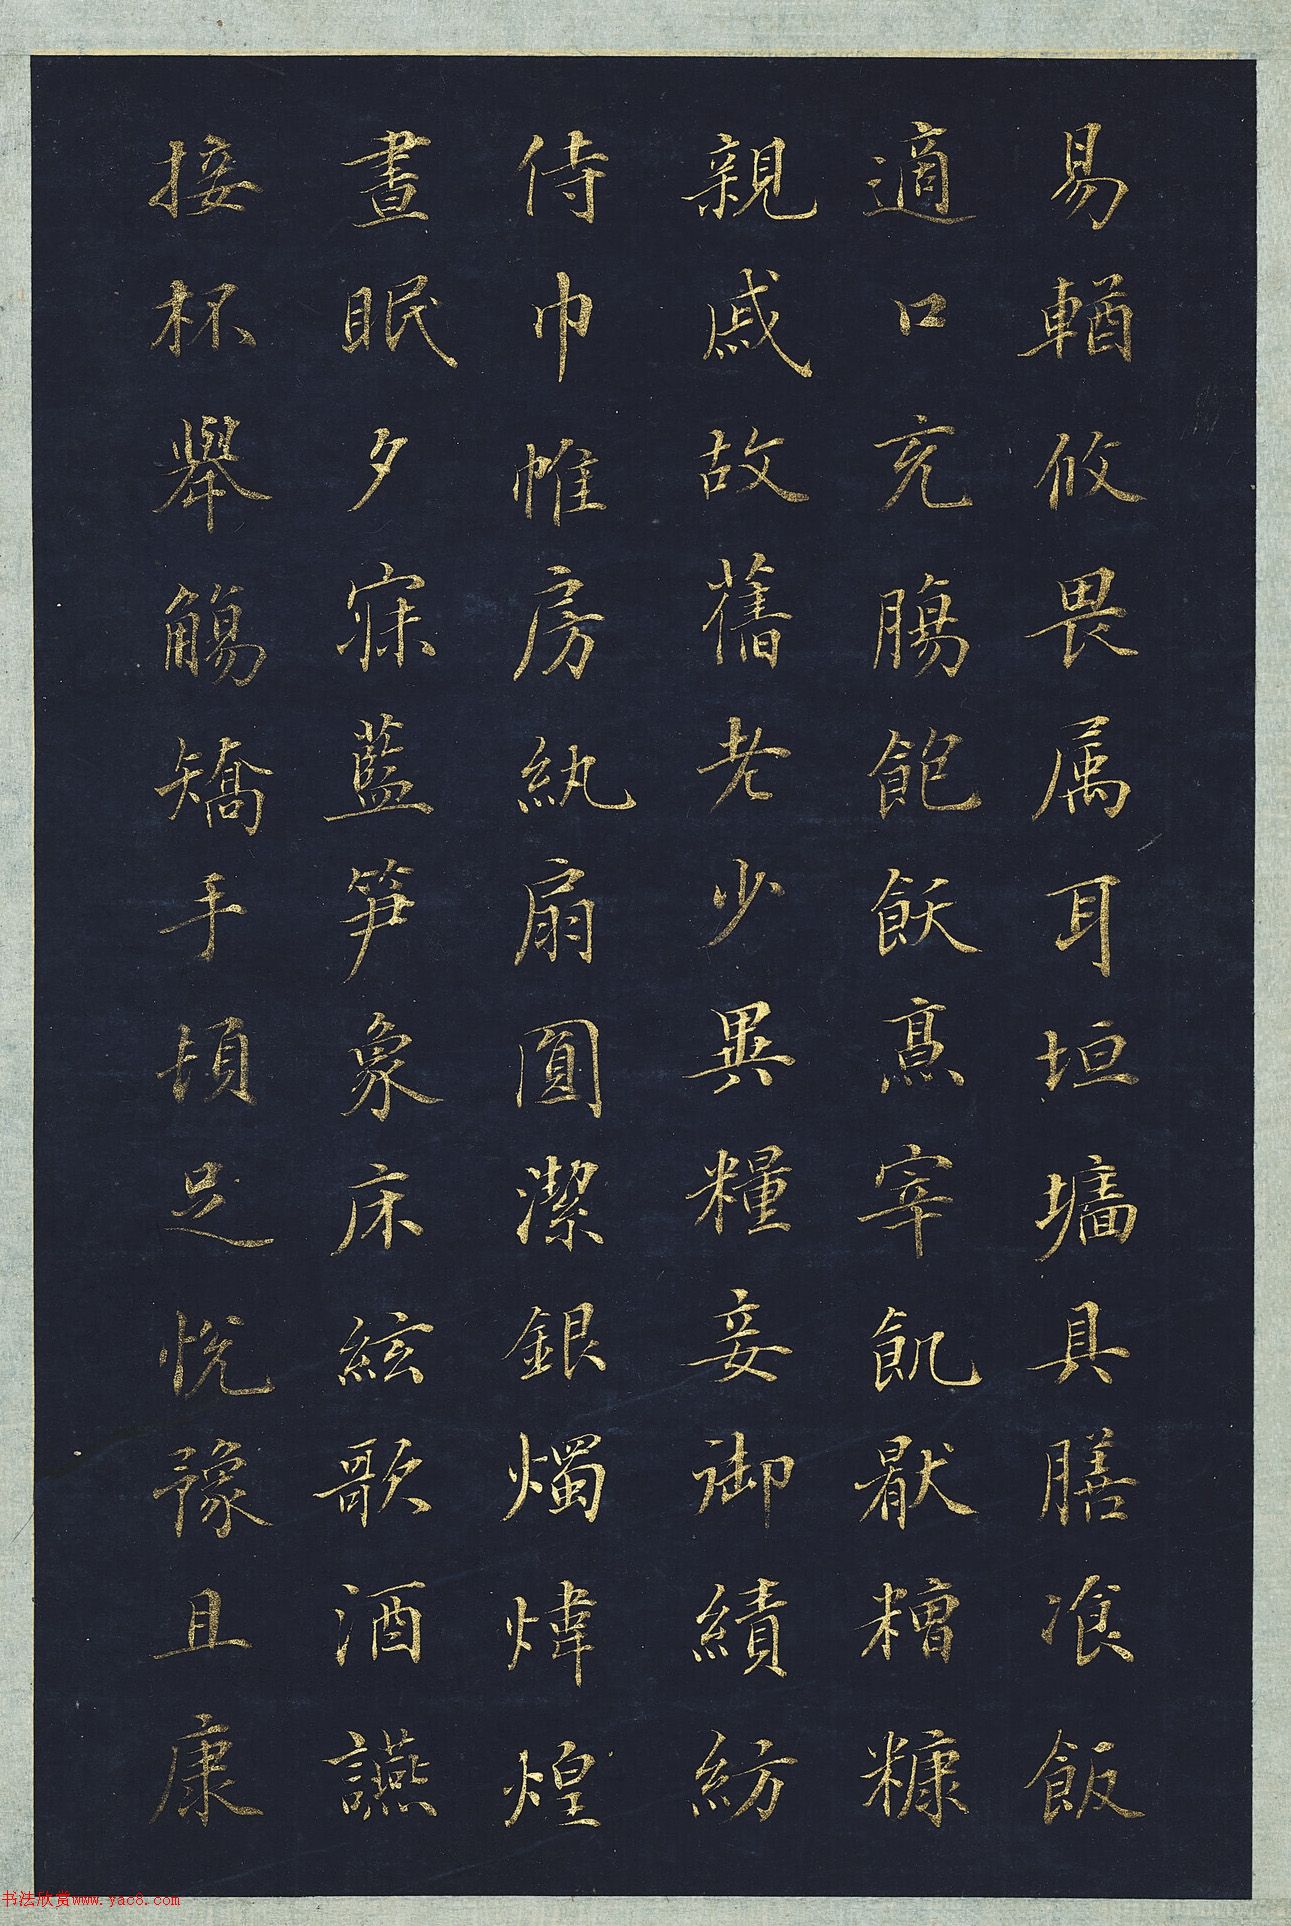 易輶攸畏属耳垣墻具膳飡飯
適口充腸飽飫亯宰飢猒糟糠
親戚故舊老少異糧妾御績紡
侍巾帷房紈扇圓潔銀燭煒煌
晝眠夕寐藍笋象床絃歌酒讌
接杯舉觴矯手頓足悅豫且康
书法欣赏www.yac8.com